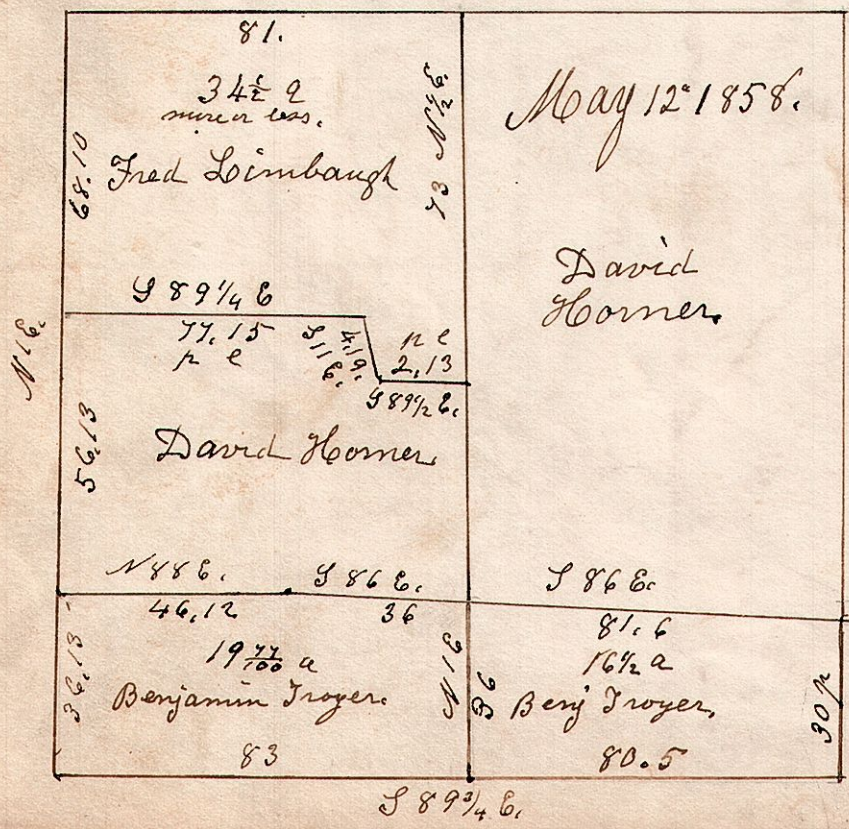 81.
34½ a
more or less.
Fred Limbaugh
68.10
73 N ½ E
May 12 1858.
David
Horner.
S 89¼ E
77.15
p e
S 11 E.
4.19.
p e
2,13
S 89½ E.
N 1 E.
56.13
David Horner.
N 88 E.
S 86 E.
S 86 E.
46,12
36
81.6
36.13
19 77/100 a
Benjamin Troyer.
N 1 E
36
16½ a
Benj Troyer,
30 p
83
80.5
S 89¾ E.